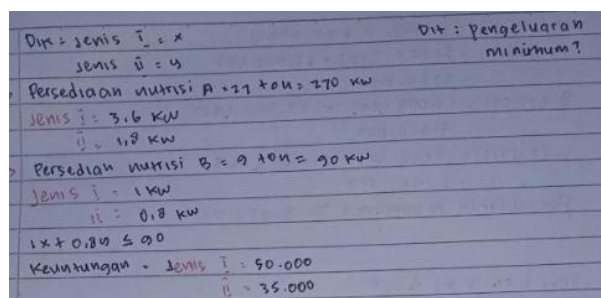 Dik = Jenis i = x
Dit : pengeluaran minimum?
Jenis ii = y
Persediaan nutrisi A = 27 ton = 270 kw
Jenis i = 3,6 kw
ii = 1,8 kw
Persediah nutrisi B = 9 ton = 90 kw
Jenis i = 1 kw
ii = 0,8 kw
1x + 0,8y ≤ 90
Keuntungan = Jenis i = 50.000
ii = 35.000